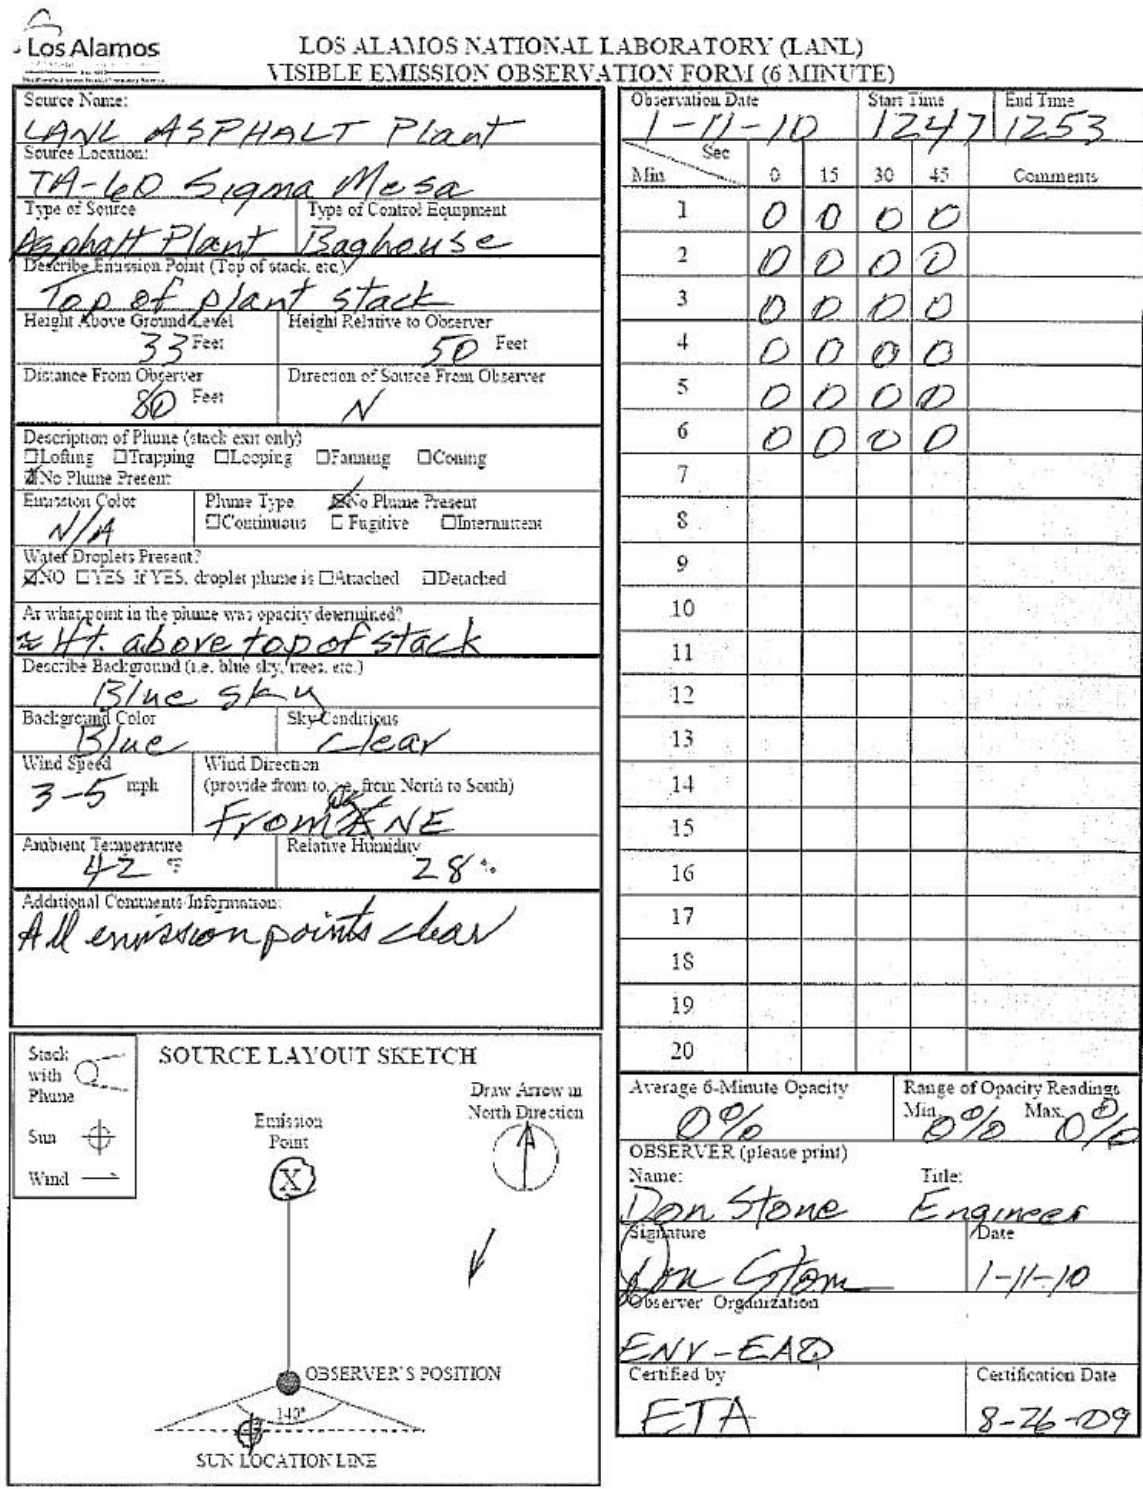 Los Alamos
LOS ALAMOS NATIONAL LABORATORY (LANL)
VISIBLE EMISSION OBSERVATION FORM (6 MINUTE)
Source Name:
LANL ASPHALT Plant
Source Location:
TA-60 Sigma Mesa
Type of Source Type of Control Equipment
Asphalt Plant Baghouse
Describe Emission Point (Top of stack, etc.)
Top of plant stack
Height Above Ground Level Height Relative to Observer
33 Feet 50 Feet
Distance From Observer Direction of Source From Observer
80 Feet N
Description of Plume (stack exit only)
☐Lofting ☐Trapping ☐Looping ☐Fanning ☐Coning
☒No Plume Present
Emission Color Plume Type ☒No Plume Present
N/A ☐Continuous ☐Fugitive ☐Intermittent
Water Droplets Present?
☒NO ☐YES If YES, droplet plume is ☐Attached ☐Detached
At what point in the plume was opacity determined?
≈ Ht. above top of stack
Describe Background (i.e. blue sky, trees, etc.)
Blue sky
Background Color Sky Conditions
Blue Clear
Wind Speed Wind Direction
3-5 mph (provide from to, i.e. from North to South)
From NE
Ambient Temperature Relative Humidity
42 °F 28 %
Additional Comments Information:
All emission points clear
Stack with Plume
Sun
Wind
SOURCE LAYOUT SKETCH
Draw Arrow in
North Direction
Emission
Point
X
OBSERVER'S POSITION
140°
SUN LOCATION LINE
Observation Date Start Time End Time
1-11-10 1247 1253
Sec
Min 0 15 30 45 Comments
1 0 0 0 0
2 0 0 0 0
3 0 0 0 0
4 0 0 0 0
5 0 0 0 0
6 0 0 0 0
7
8
9
10
11
12
13
14
15
16
17
18
19
20
Average 6-Minute Opacity Range of Opacity Readings
0% Min. 0% Max. 0%
OBSERVER (please print)
Name: Title:
Don Stone Engineer
Signature Date
Don Stone 1-11-10
Observer Organization
ENV-EAQ
Certified by Certification Date
ETA 8-26-09